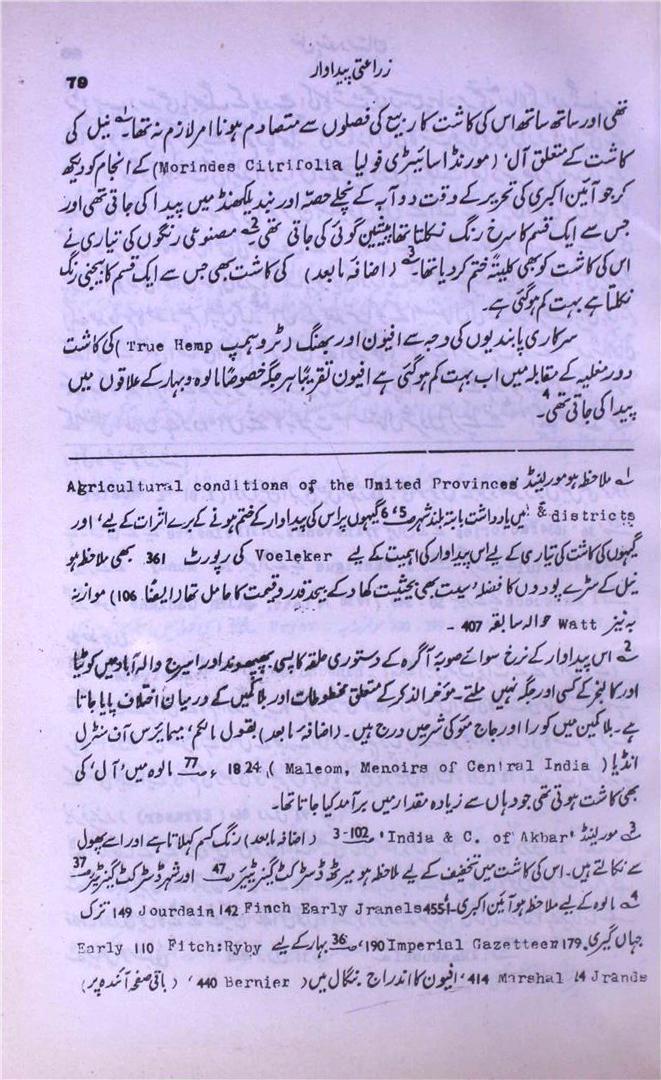 79
زراعتی پیداوار
تھی اور ساتھ ساتھ اس کی کاشت کا ربیع کی فصلوں سے متصادم ہونا امر لازم نہ تھا۔1 نیل کی
کاشت کے متعلق آل، (مورنڈا سائیٹری فولیا Morindes Citrifolia) کے انجام کو دیکھ
کر جو آئین اکبری کی تحریر کے وقت دوآبہ کے نچلے حصہ اور بندیلکھنڈ میں پیدا کی جاتی تھی اور
جس سے ایک قسم کا سرخ رنگ نکلتا تھا پیشین گوئی کی جاتی تھی۔2 مصنوعی رنگوں کی تیاری نے
اس کی کاشت کو بھی کلیتہً ختم کر دیا تھا۔3 (اضافہ مابعد) کی کاشت بھی جس سے ایک قسم کا رنگ
نکلتا ہے بہت کم ہو گئی ہے۔
سرکاری پابندیوں کی وجہ سے افیون اور بھنگ (ٹرو ہیمپ True Hemp) کی کاشت
دور مغلیہ کے مقابلہ میں اب بہت کم ہو گئی ہے افیون تقریباً ہر جگہ خصوصاً مالوہ و بہار کے علاقوں میں
پیدا کی جاتی تھی۔4
1 ملاحظہ ہو مورلینڈ Agricultural conditions of the United Provinces
& districts میں یادداشت بابتہ بلند شہر 5، 6 گیہوں پر اس کی پیداوار کے ختم ہونے کے برے اثرات کے لیے، اور
گیہوں کی کاشت کی تیاری کے لیے اس پیداوار کی اہمیت کے لیے Voeleker کی رپورٹ 361۔ بھی ملاحظہ ہو
نیل کے سڑے پودوں کا فضلہ، سیت بھی بحیثیت کھاد کے بیحد قدر و قیمت کا حامل تھا (ایضاً 106) موازنہ
بہ نیز Watt حوالہ سابقہ 407 ۔
2 اس پیداوار کے نرخ سوائے صوبۂ آگرہ کے دستوری حلقہ کالپی بھیھوند اور امیرج والہ آباد میں کوٹیا
اور کالنجر کے کسی اور جگہ نہیں ملتے۔ مؤخر الذکر کے متعلق مخطوطات اور بلاکمین کے درمیان اختلاف پایا جاتا
ہے۔ بلاکمین میں کورا اور جاج مئو کی شرمیں درج ہیں۔ (اضافہ مابعد) بقول مالکم، میمائرس آف سنٹرل
انڈیا (Maleom, Menoirs of Central India)، 1824ء 77 مالوہ میں 'آل' کی
بھی کاشت ہوتی تھی جو وہاں سے زیادہ مقدار میں برآمد کیا جاتا تھا۔
3 مورلینڈ 'India & C. of Akbar' 3-102 (اضافہ مابعد) رنگ کسم کہلاتا ہے اور اسے پھول
سے نکالتے ہیں۔ اس کی کاشت میں تخفیف کے لیے ملاحظہ ہو میرٹھ ڈسٹرکٹ گزیٹیر 47 اور شہر ڈسٹرکٹ گزیٹیر 37
4 مالوہ کے لیے ملاحظہ ہو آئین اکبری، 455 Finch Early Jranels 142 Jourdain 149 تزک
جہاں گیری 179 Imperial Gazetteen 190، بہار کے لیے 36 Fitch:Ryby 110 Early
Jrands 14 Marshal 414، افیون کا اندراج بنگال میں (Bernier 440، (باقی صفحہ آئندہ پر)